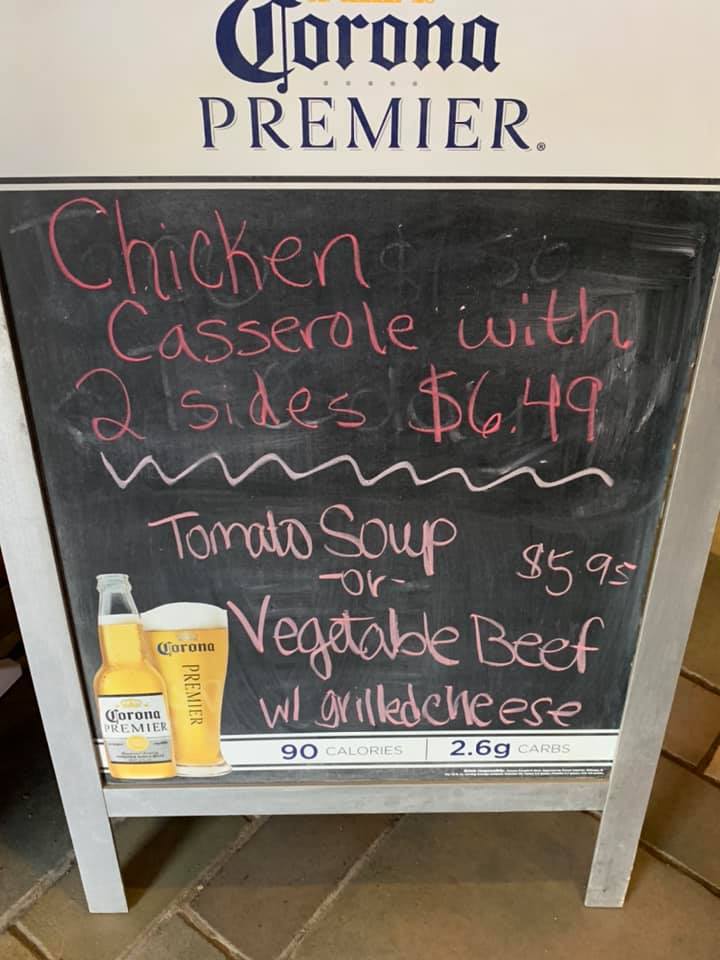 Corona
PREMIER®
Chicken
Casserole with
2 sides $6.49
Tomato Soup
-or- $5.95
Vegetable Beef
w/ grilled cheese
Corona
PREMIER
Corona
PREMIER
90 CALORIES | 2.6g CARBS